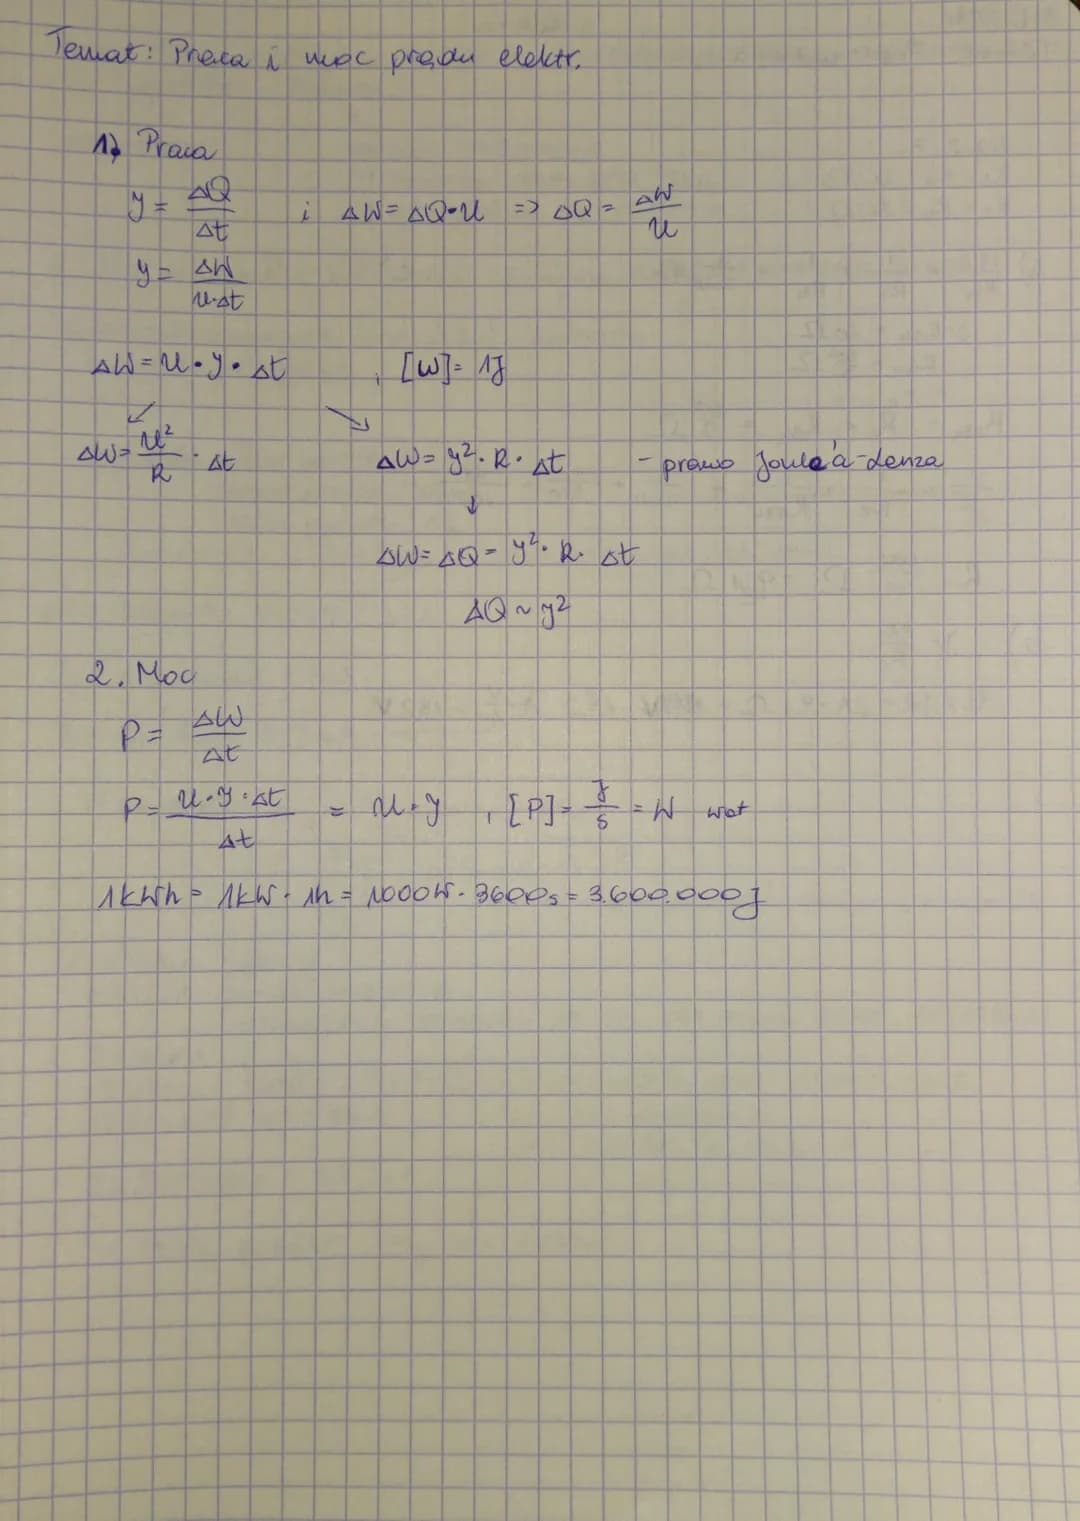 Temat: Praca i moc prądu elektr.
1) Praca
y = ΔQ/Δt i ΔW = ΔQ·U => ΔQ = ΔW/U
y = ΔW/U·Δt
ΔW = U·y·Δt , [W] = 1J
↙ ↘
ΔW = U²/R · Δt ΔW = y²·R·Δt - prawo Joule'a-Lenza
↓
ΔW = ΔQ = y²·R·Δt
ΔQ ~ y²
2. Moc
P = ΔW/Δt
P = U·y·Δt/Δt = U·y , [P] = J/s = W wat
1kWh = 1kW·1h = 1000W·3600s = 3.600.000J